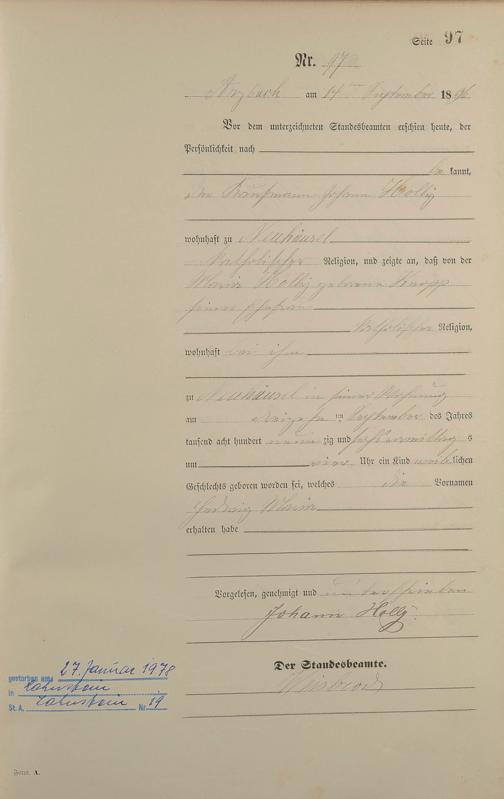 Seite 97
Nr. 97
Arzbach am 14ten September 1896
Vor dem unterzeichneten Standesbeamten erschien heute, der
Persönlichkeit nach
be kannt,
der Kaufmann Johann Hollig
wohnhaft zu Neuhäusel
katholischer Religion, und zeigte an, daß von der
Maria Hollig geborene Knopp
seiner Ehefrau
katholischer Religion,
wohnhaft bei ihm
zu Neuhäusel in seiner Wohnung
am ten September des Jahres
tausend acht hundert neun zig und sechs vormittag s
um vier Uhr ein Kind weiblichen
Geschlechts geboren worden sei, welches die Vornamen
Hedwig Maria
erhalten habe
Vorgelesen, genehmigt und unterschrieben
Johann Hollig
Der Standesbeamte.
gestorben am: 27. Januar 1978
in Lahnstein
St. A. Lahnstein Nr. 19
Form. A.